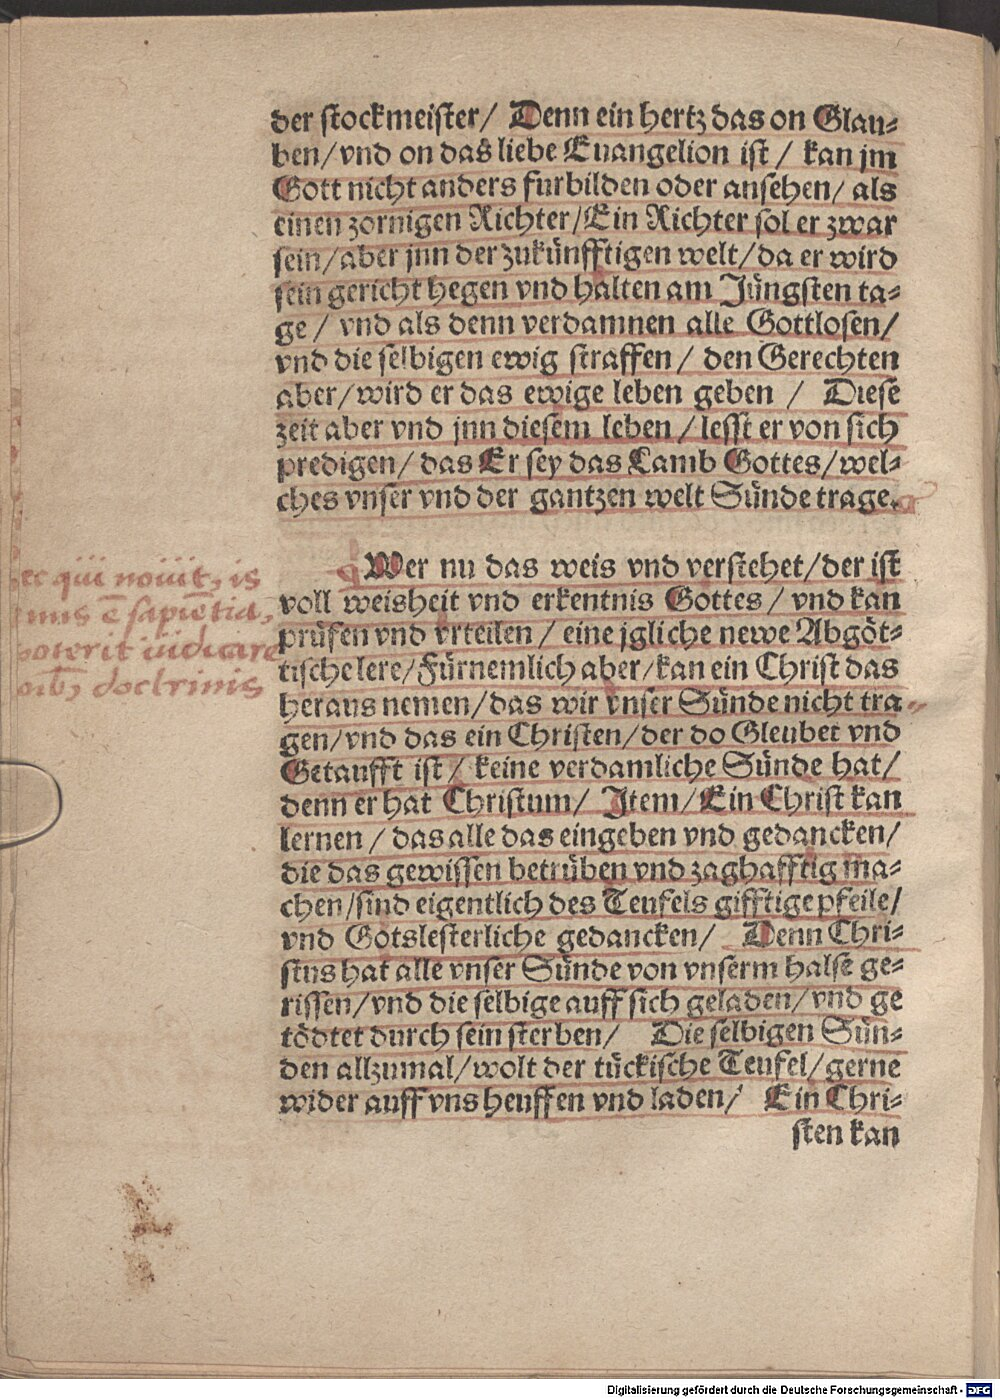 der ſtockmeiſter/ Denn ein hertz das on Glau⸗
ben/vnd on das liebe Euangelion iſt / kan jm
Gott nicht anders furbilden oder anſehen/ als
einen zornigen Richter/Ein Richter ſol er zwar
ſein/aber jnn der zukünfftigen welt/da er wird
ſein gericht hegen vnd halten am Jüngſten ta⸗
ge / vnd als denn verdamnen alle Gottloſen/
vnd die ſelbigen ewig ſtraffen / den Gerechten
aber/wird er das ewige leben geben / Dieſe
zeit aber vnd jnn dieſem leben /leſſt er von ſich
predigen/ das Er ſey das Lamb Gottes/wel⸗
ches vnſer vnd der gantzen welt Sünde trage.
Wer nu das weis vnd verſtehet/der iſt
voll weisheit vnd erkentnis Gottes / vnd kan
prüfen vnd vrteilen / eine jgliche newe Abgöt⸗
tiſche lere/Fürnemlich aber/kan ein Chriſt das
heraus nemen/das wir vnſer Sünde nicht tra⸗
gen/vnd das ein Chriſten/der do Gleubet vnd
Getaufft iſt/ keine verdamliche Sünde hat/
denn er hat Chriſtum/ Item/Ein Chriſt kan
lernen / das alle das eingeben vnd gedancken/
die das gewiſſen betrüben vnd zaghafftig ma⸗
chen/ſind eigentlich des Teufels gifftige pfeile/
vnd Gotsleſterliche gedancken/ Denn Chri⸗
ſtus hat alle vnſer Sünde von vnſerm halſe ge⸗
riſſen/vnd die ſelbige auff ſich geladen/vnd ge
tödtet durch ſein ſterben/ Die ſelbigen Sün⸗
den allzumal/wolt der tückiſche Teufel/gerne
wider auff vns heuffen vnd laden/ Ein Chri⸗
ſten kan
qui nouit, is
ē sapiētia,
poterit iudicare
doctrinis
Digitalisierung gefördert durch die Deutsche Forschungsgemeinschaft - DFG